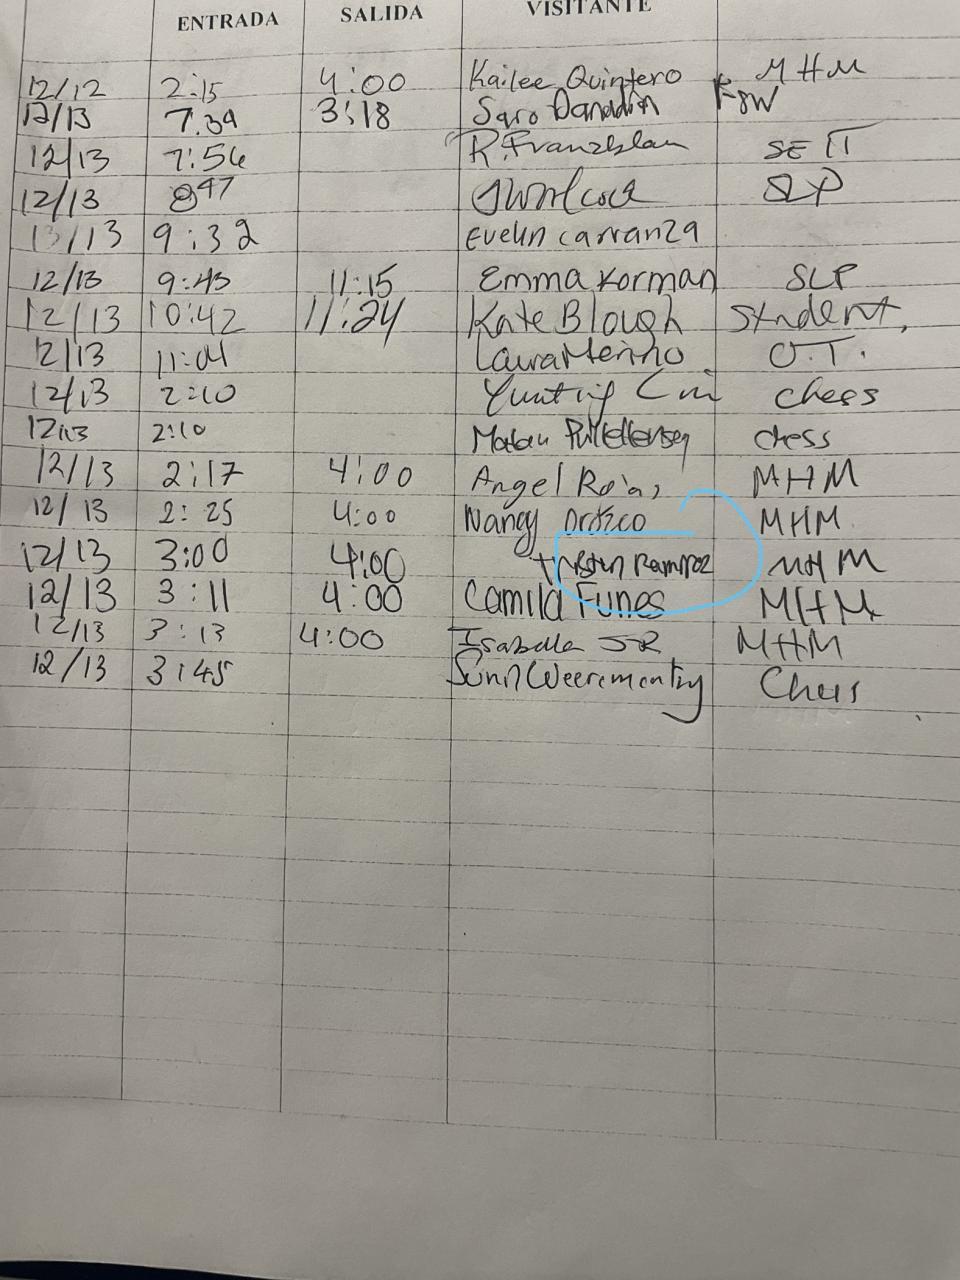 ENTRADA SALIDA VISITANTE
12/12 2:15 4:00 Kailee Quintero MHM
12/13 7:39 3:18 Saro
12/13 7:56 R. Franzblau SEIT
12/13 8:47 SLP
13/13 9:32 Evelin carranza
12/13 9:45 11:15 Emma Korman SLP
12/13 10:42 11:24 Kate Blough Student,
12/13 11:04 Laura Merino O.T.
12/13 2:10 chess
12/13 2:10 chess
12/13 2:17 4:00 Angel MHM
12/13 2:25 4:00 Nancy MHM
12/13 3:00 4:00 MHM
12/13 3:11 4:00 Camila Funes MHM
12/13 3:13 4:00 MHM
12/13 3:45 Chess